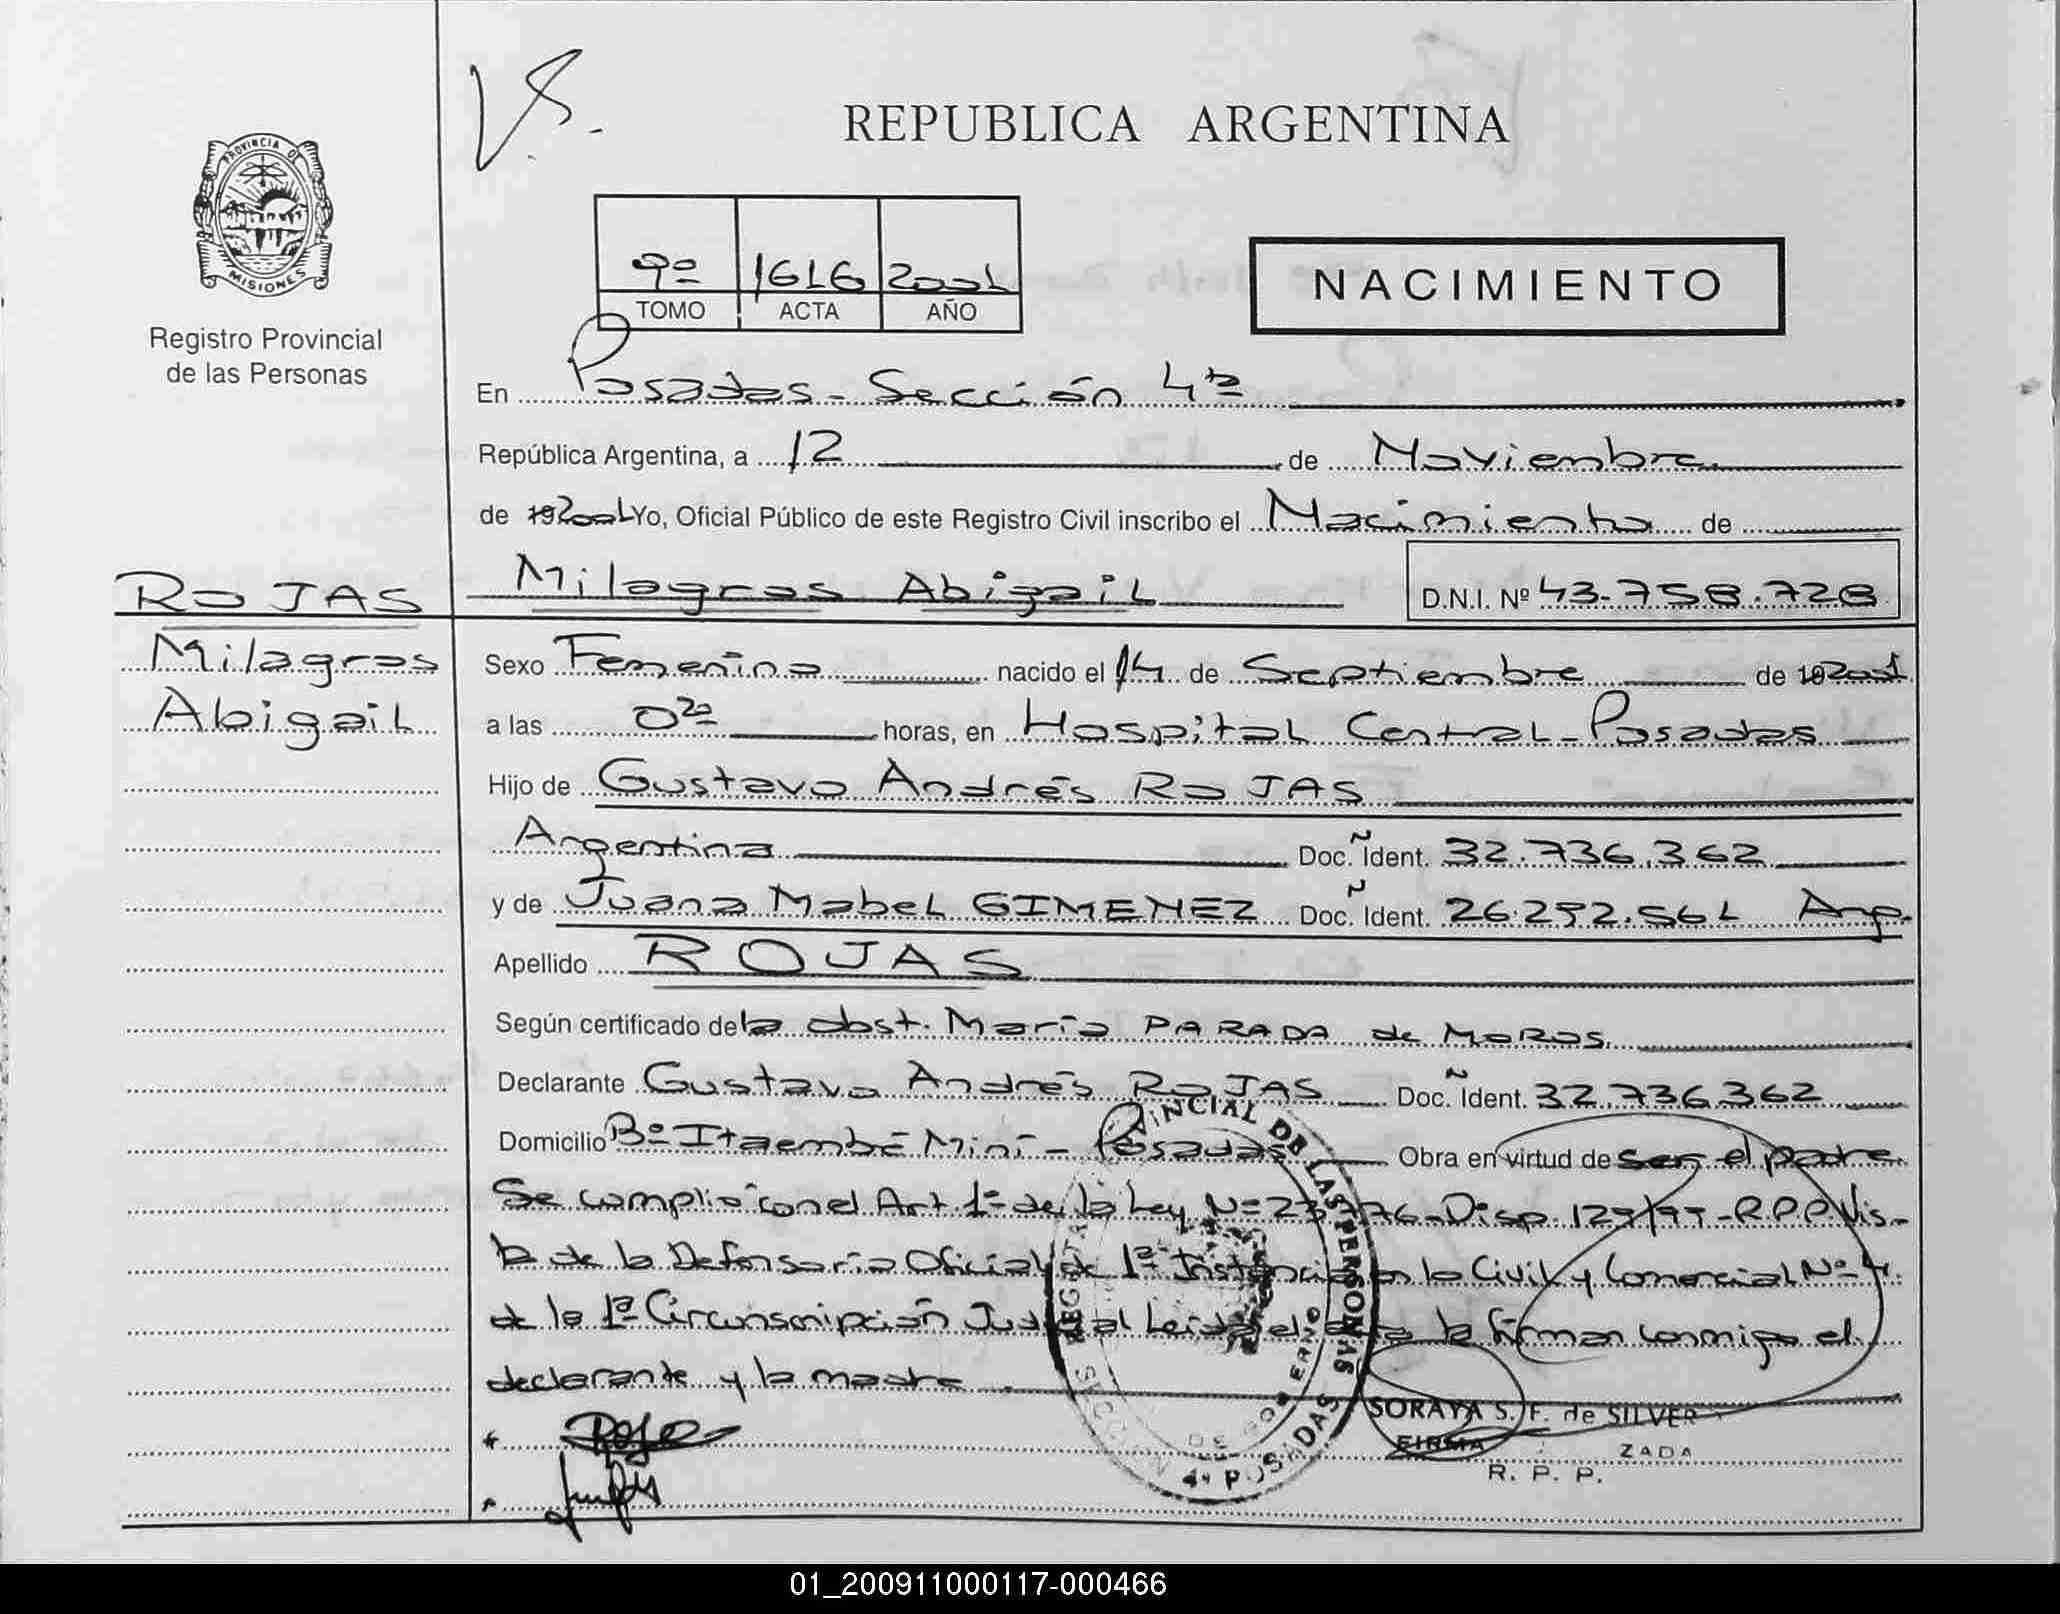 VS.
REPUBLICA ARGENTINA
PROVINCIA DE
MISIONES
Registro Provincial
de las Personas
9º 1616 2001
TOMO ACTA AÑO
NACIMIENTO
En Posadas - Sección 4ta
República Argentina, a 12 de Noviembre
de 192001 Yo, Oficial Público de este Registro Civil inscribo el Nacimiento de
Milagros Abigail D.N.I. Nº 43.758.728
ROJAS
Milagros
Abigail
Sexo Femenino nacido el 14 de Septiembre de 192001
a las 0 20 horas, en Hospital Central - Posadas
Hijo de Gustavo Andrés ROJAS
Argentina Doc. Ñ Ident. 32.736.362
y de Juana Mabel GIMENEZ Doc. Ñ Ident. 26.292.561 Arg.
Apellido ROJAS
Según certificado de la obst. María PARADA de MOROS
Declarante Gustavo Andrés ROJAS Doc. Ñ Ident. 32.736.362
Domicilio Bº Itaembé Miní - Posadas Obra en virtud de ser el padre.
Se cumplió con el Art. 1º de la Ley Nº Disp. R.P.P. Vis-
ta de la Defensoría Oficial de 1ª Instancia en lo Civil y Comercial Nº 4
de la 1ª Circunscripción Judicial Leída el acta la firman conmigo el
declarante y la madre
DE LAS PERSONAS
POSADAS
SORAYA S. F. de SILVER
FIRMA ZADA
R. P. P.
01_200911000117-000466